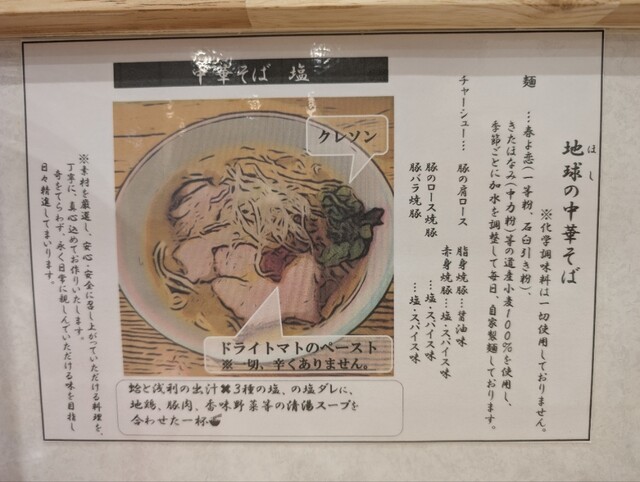 地球の中華そば
ほし
※化学調味料は一切使用しておりません。
麺
…春よ恋(一等粉、石臼引き粉)、
きたほなみ(中力粉)等の道産小麦100%を使用し、
季節ごとに加水を調整して毎日、自家製麺しております。
チャーシュー…
豚の肩ロース
脂身焼豚…醤油味
赤身焼豚…塩・スパイス味
豚のロース焼豚
…塩・スパイス味
豚バラ焼豚
…塩・スパイス味
中華そば 塩
クレソン
ドライトマトのペースト
※一切、辛くありません。
蛤と浅利の出汁✖3種の塩、の塩ダレに、
地鶏、豚肉、香味野菜等の清湯スープを
合わせた一杯
※素材を厳選し、安心・安全に召し上がっていただける料理を、
丁寧に、真心込めてお作りいたします。
奇をてらわず、永く日常に親しんでいただける味を目指し
日々精進してまいります。